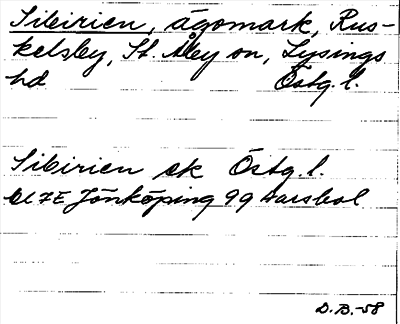 Sibirien, ägomark, Rus-
kelsby, St. Åby sn, Lysings
hd Östg. l.
Sibirien ek Östg. l.
Bl 7E Jönköping 99
D.B.-58